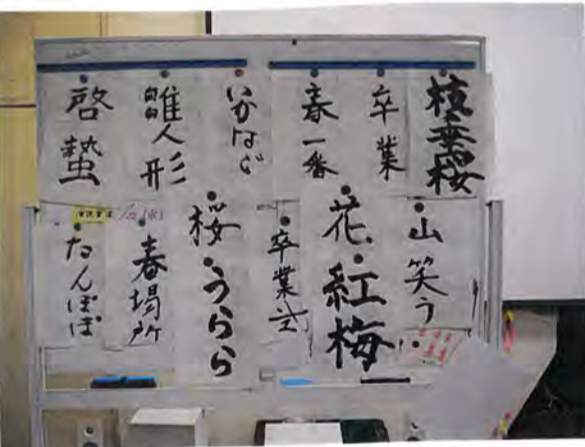 枝垂桜
卒業
春一番
いかなご
雛人形
啓蟄
山笑う
花・紅梅
卒業式
桜・うらら
春場所
たんぽぽ